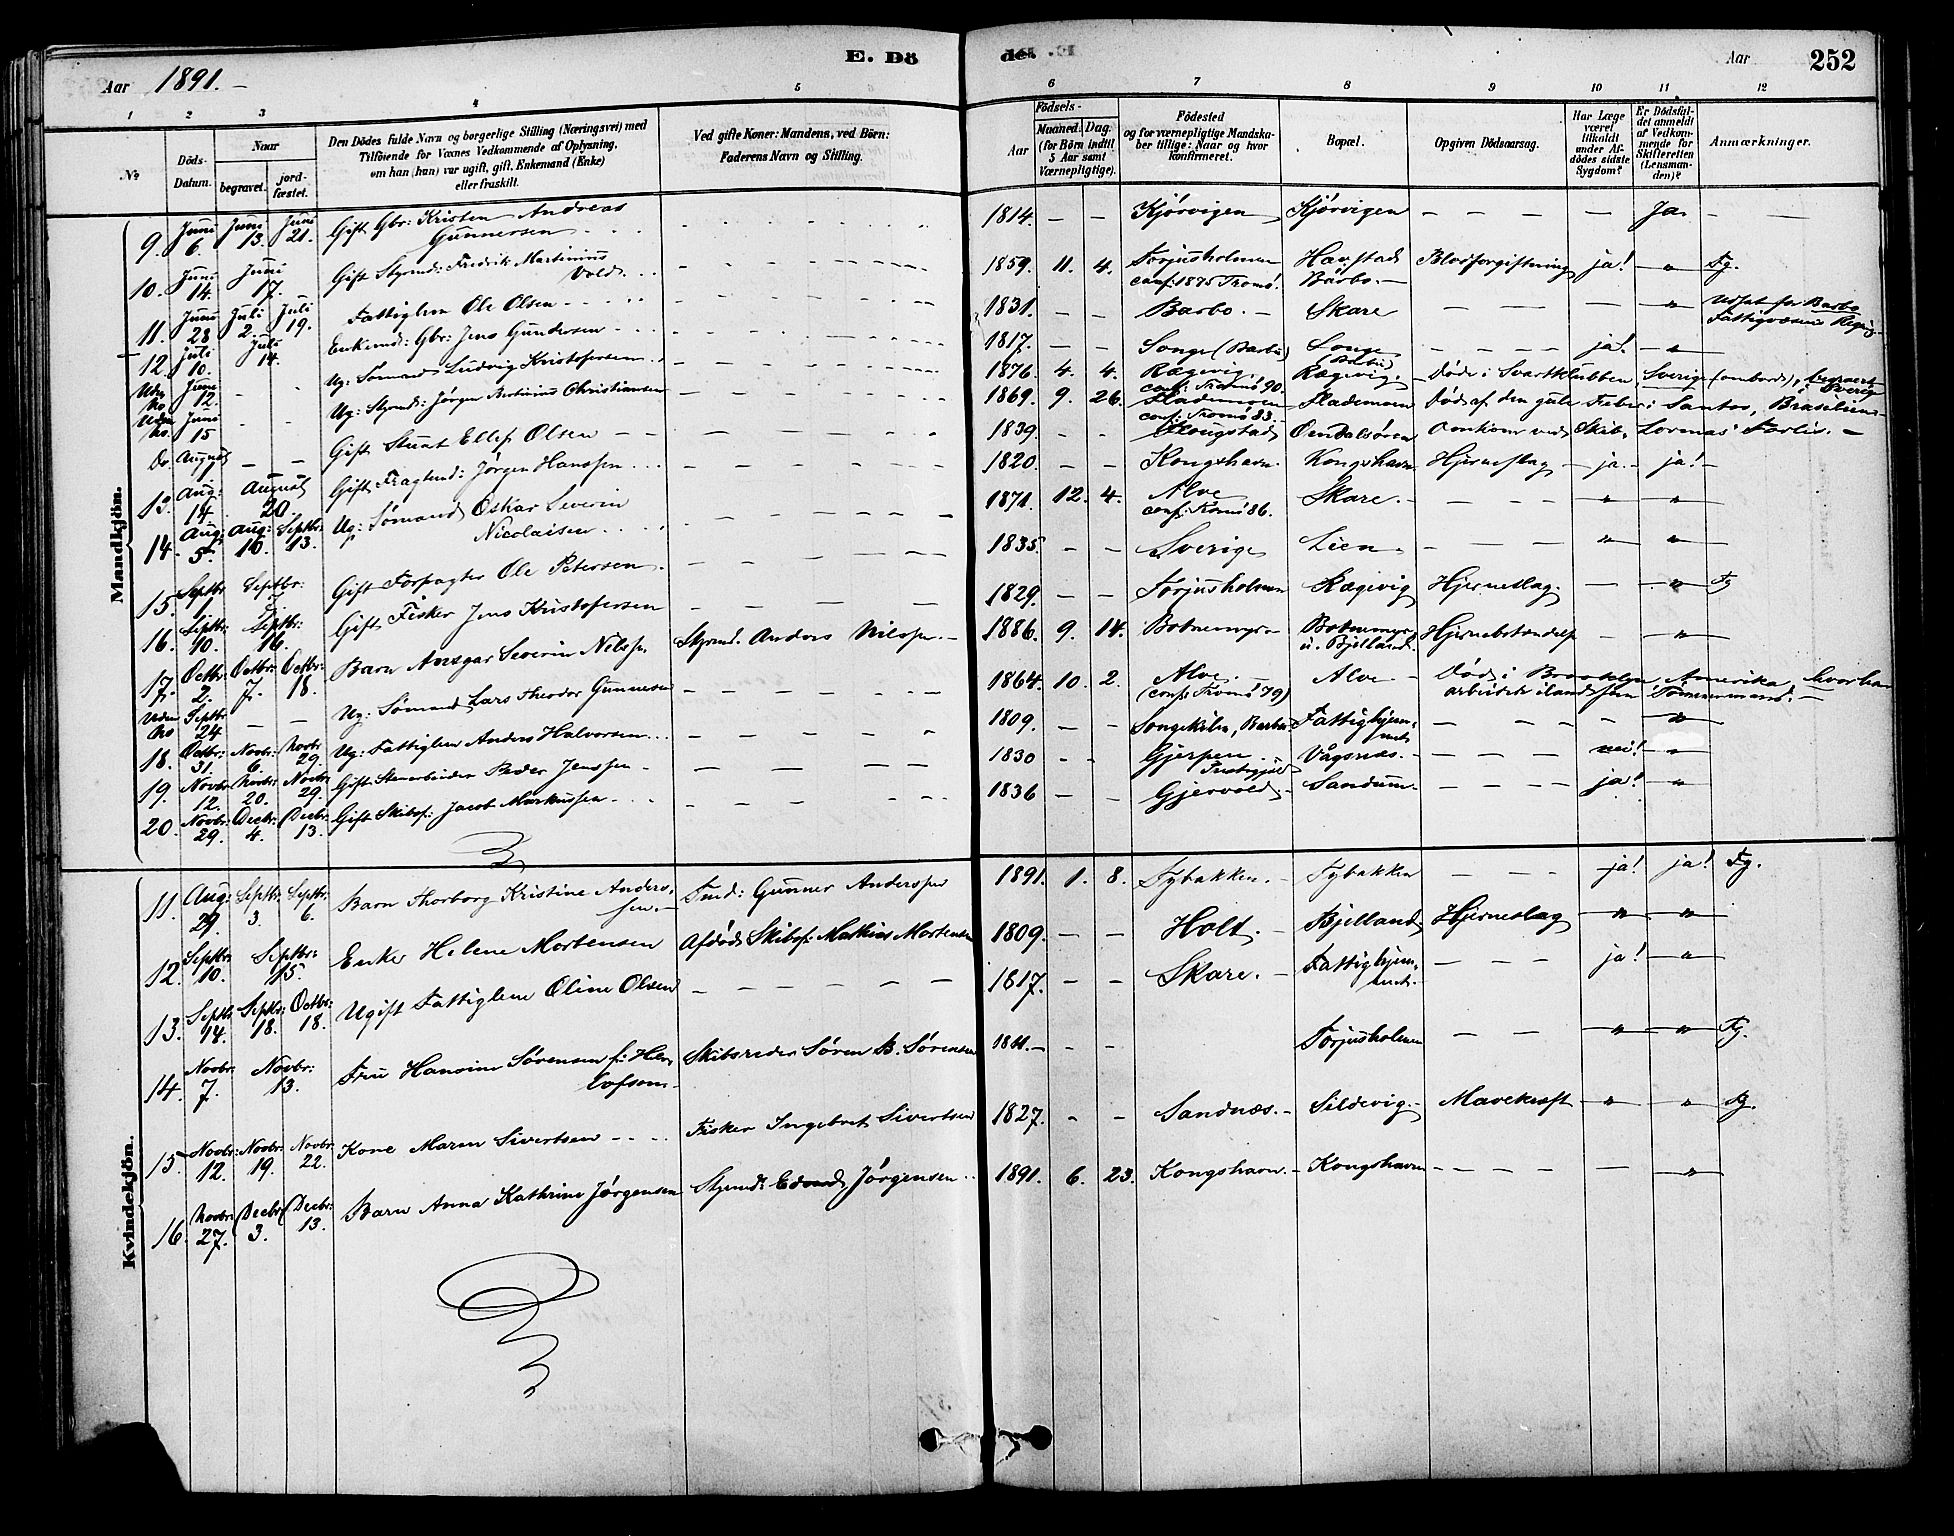 E. Dö
Aar 1891.
1 2 3 4 5
No
Döds-Datum.
Naar
begravet.
jord-fæstet.
Den Dödes fulde Navn og borgerlige Stilling (Næringsvei) med
Tilföiende for Voxnes Vedkommende af Oplysning,
om han (hun) var ugift, gift, Enkemand (Enke)
eller fraskilt.
Ved gifte Koner: Mandens, ved Börn:
Faderens Navn og Stilling.
Mandkjön.
9. Juni 6. Juni 13. Juni 21. Gift Gbr: Kristen Andreas
Gunnersen
10. Juni 14. Juni 17. Gift Styrmd: Fredrik Martinius
Vold
11. Juni 28 Juli 2. Juli 19. Fattiglem Ole Olsen
12. Juli 10. Juli 14. Enkemd: Gbr: Jens Gundersen
Uden No Juni 12. Ug: Sømand Ludvig Kristofersen
Uden No Juni 15 Ug: Styrmd: Jørgen Bertinius Christiansen
Do. August 1 Gift Stuat Ellef Olsen
13. Aug: 14. August 20. Gift Fragtmd: Jørgen Hanssen
14. Aug: 5. Aug: 16. Septbr: 13. Ug: Sømand Oskar Severin
Nicolaisen
15. Septbr 1 Septbr: 7. Gift Forpagter Ole Petersen
16. Septbr: 10. Septbr: 16. Gift Fisker Jens Kristofersen
17. Octbr: 2. Octbr: 7. Octbr: 18. Barn Ansgar Severin Nilssen Styrmd. Anders Nilssen
Uden No Septbr 24 Ug: Sømand Lars Theodor Gunnersen
18. Octbr: 31. Novbr: 6. Novbr 29. Ug: Fattiglem Anders Halvorsen
19. Novbr 12. Novbr: 20. Novbr 29. Gift Stenarbeider Peder Jenssen
20. Novbr: 29. Decbr: 4. Decbr: 13. Gift Skibsf: Jacob Markussen
Kvindekjön.
11. Aug: 29. Septbr 3. Septbr: 6. Barn Thorborg Kristine Anders-
sen Tmd: Gunner Anderssen
12. Septbr: 10. Septbr: 15. Enke Helene Mortensen Afdød Skibsf: Mathias Mortensen
13. Septbr 14. Septbr: 18. Octbr: 18. Ugift Fattiglem Oline Olsen
14. Novbr: 7. Novbr: 13. Fru Hansine Sørensen f: Her-
lofsen Skibsreder Søren B. Sørensen
15. Novbr: 12. Novbr: 19. Novbr: 22. Kone Maren Sivertsen Fisker Ingebret Sivertsen
16. Novbr: 27. Decbr 3. Decbr: 13. Barn Anna Kathrine Jørgensen Styrmd: Edvard Jørgensen
de. Aar 252
6 7 8 9 10 11 12
Aar
Födsels-
Maaned. Dag.
(for Börn indtil
5 Aar samt
Værnepligtige).
Födested
og for værnepligtige Mandska-
ber tillige: Naar og hvor
konfirmeret.
Bopæl.
Opgiven Dödsaarsag.
Har Læge
været
tilkaldt
under Af-
dödes sidste
Sygdom?
Er Dödsfal-
det anmeldt
af Vedkom-
mende for
Skifteretten
(Lensman-
den)?
Anmærkninger.
1814 Kjørvigen Kjørvigen Ja.
1859. 11. 4. Torjusholmen Havstad Blodforgiftning ja! " Fg.
conf: 1875 Tromö. Barbo.
1831. Barbo. Skare " Udsat for Barbo
Fattigvæsens Regng.
1817. Songe (Barbo) Longe (Barbo) ja! "
1876. 4. 4. Rægevig. Rægevig. Døde i Svartklubben, Sverige (ombord), begravet i Sverige
conf: Tromö 90.
1869. 9. 26. Flademoen Flademoen Død af den gule Feber i Santos, Brasilien
conf: Tromö 83.
1839. Ougstad Omkom ved Skib
1820. Kongshavn Kongshavn Hjerneslag ja. ja!
1871. 12. 4. Alve Skare. " "
conf: Tromö 86.
1835. Sverige Lien " "
1829. Torjusholmen Rægevig Hjerneslag. " Fg
1886. 9. 14. Botnemyr Botnemyr Hjernebetændelse "
u. Bjelland
1864. 10. 2. Alve. Alve Død i Brooklyn Amerika hvor han
(conf: Tromö 79) arbeidede i land som Tømmermand.
1809. Songekilen, Barbo Fattighjem-
met "
1830 Gjerpen Vågsnæs. nei! "
1836 Gjervold Sandum. ja! "
1891. 1. 8. Tybakken. Tybakken ja! ja! Fg.
1809. Holt. Bjelland Hjerneslag " "
1817. Skare. Fattighjem-
met. ja! "
1811. Torjusholmen " " Fg.
1827. Sandnæs. Sildevig. Mavekræft " " Fg.
1891. 6. 23. Kongshavn Kongshavn "